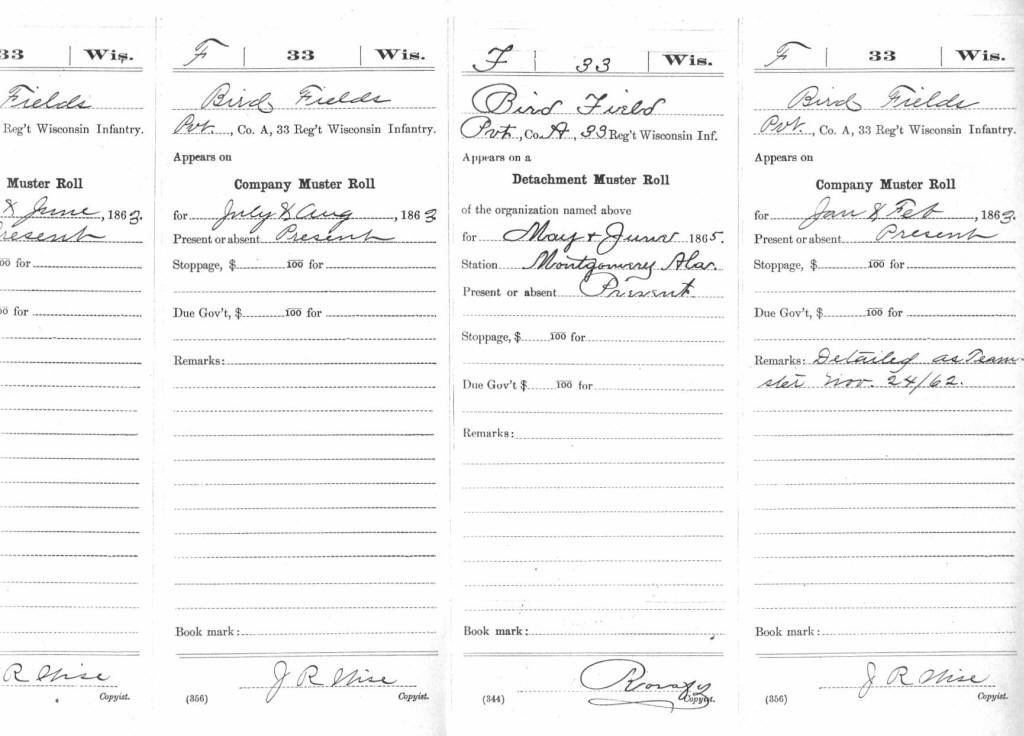 33 | Wis.
Fields
Reg't Wisconsin Infantry.
Muster Roll
& June, 1863.
Present
00 for
00 for
R Wise
Copyist.
F | 33 | Wis.
Bird Fields
Pvt., Co. A, 33 Reg't Wisconsin Infantry.
Appears on
Company Muster Roll
for July & Aug, 1863
Present or absent Present
Stoppage, $ 100 for
Due Gov't, $ 100 for
Remarks:
Book mark:
J R Wise
(356) Copyist.
F | 33 | Wis.
Bird Field
Pvt., Co. A, 33 Reg't Wisconsin Inf.
Appears on a
Detachment Muster Roll
of the organization named above
for May & June 1865.
Station Montgomery Ala.
Present or absent Present
Stoppage, $ 100 for
Due Gov't $ 100 for
Remarks:
Book mark:
(344) Copyist.
F | 33 | Wis.
Bird Fields
Pvt., Co. A, 33 Reg't Wisconsin Infantry.
Appears on
Company Muster Roll
for Jan & Feb, 1863.
Present or absent Present
Stoppage, $ 100 for
Due Gov't, $ 100 for
Remarks: Detailed as Team-
ster Nov. 24/62.
Book mark:
J R Wise
(356) Copyist.